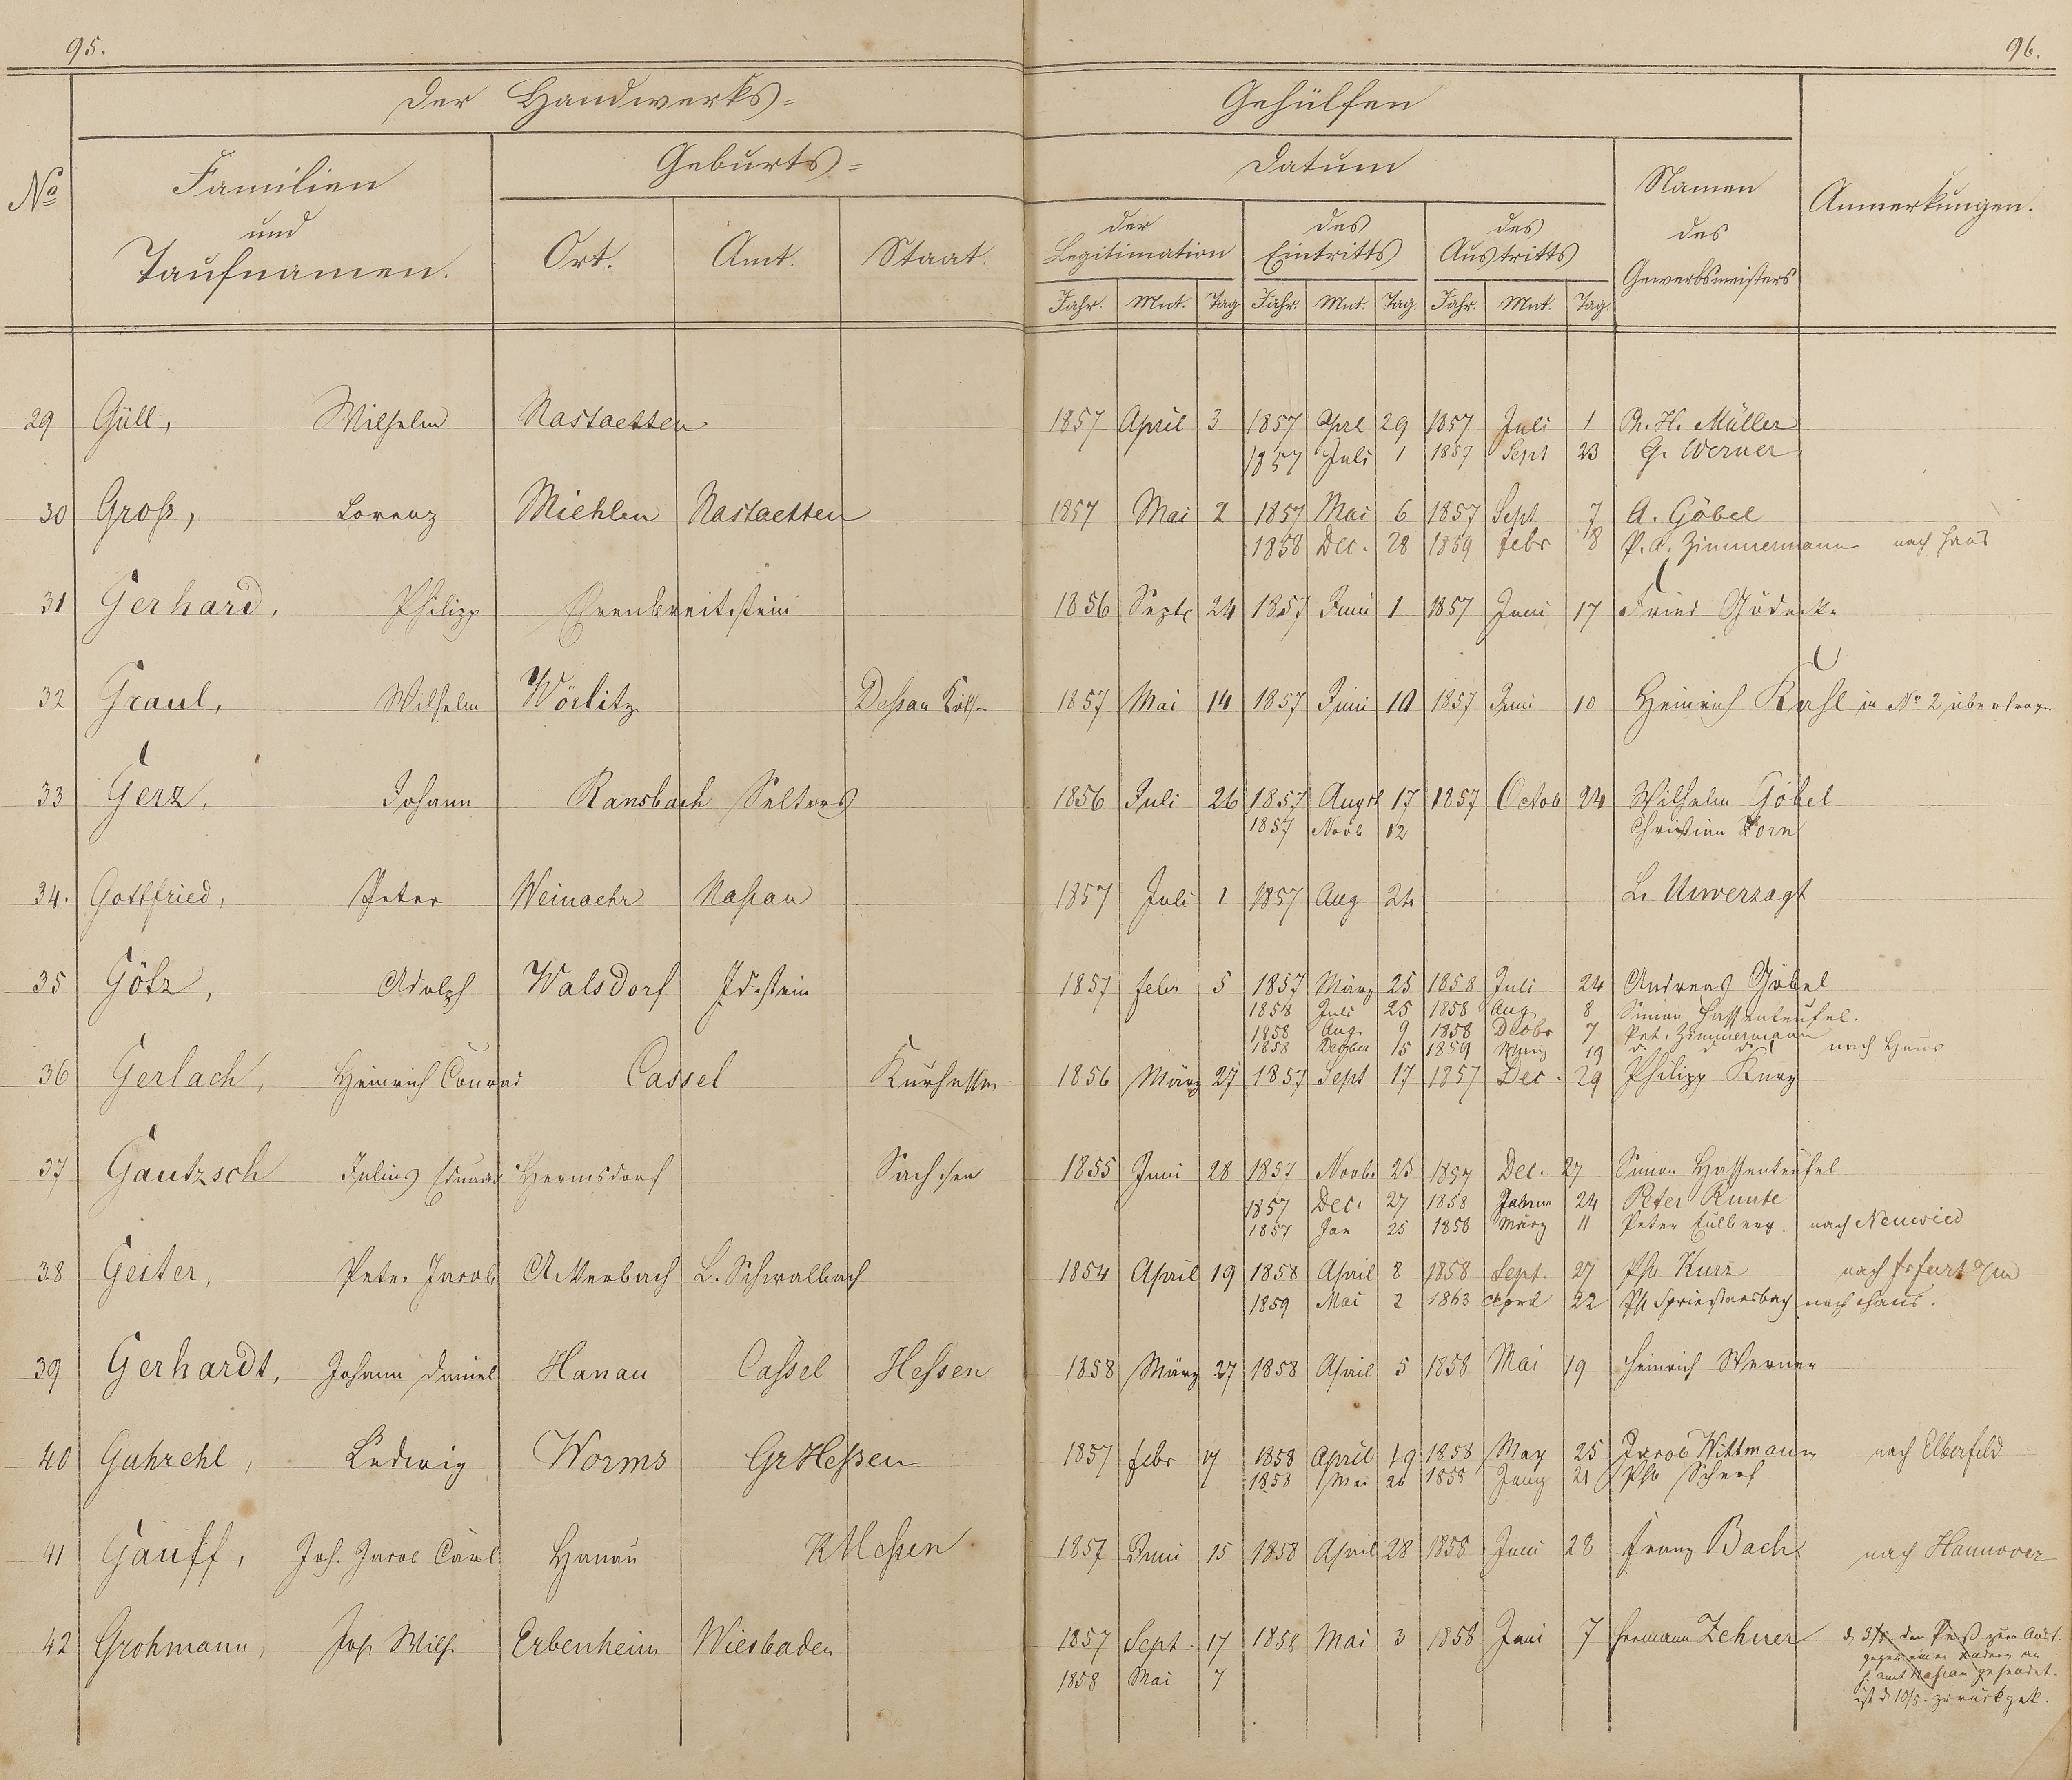 95.
96.
Der Handwerks=
Gehülfen
No
Familien
und
Taufnamen.
Geburts=
Ort.
Amt.
Staat.
Datum
der
Legitimation
des
Eintritts
des
Austritts
Jahr. Mnt. Tag Jahr. Mnt. Tag. Jahr. Mnt. Tag.
Namen
des
Gewerbsmeisters
Anmerkungen.
29 Güll, Wilhelm Nastaetten 1857 April 3 1857 Aprl 29 1857 Juli 1 Ph. H. Müller
1857 Juli 1 1857 Sept 23 G. Werner
30 Groß, Lorenz Miehlen Nastaetten 1857 Mai 2 1857 Mai 6 1857 Sept 7 A. Göbel
1858 Dec. 28 1859 febr 8 P. A. Zimmermann nach Haus
31 Gerhard, Philipp Erenbreitstein 1856 Septe 24 1857 Juni 1 1857 Juni 17 Fried Gödecke
32 Graul, Wilhelm Wörlitz Deßau Köth 1857 Mai 14 1857 Juni 10 1857 Juni 10 Heinrich Kahl in No 2 übertragn
33 Gerz, Johann Ransbach Selters 1856 Juli 26 1857 Augst 17 1857 Octob 24 Wilhelm Göbel
1857 Novb 12 Christian Zorn
34. Gottfried, Peter Weinaehr Naßau 1857 Juli 1 1857 Aug 24 L. Unverzagt
35 Götz, Adolph Walsdorf Idstein 1857 febr 5 1857 März 25 1858 Juli 24 Andreas Göbel
1858 Juli 25 1858 Aug. 8 Simon Hassenteufel.
1858 Aug. 9 1858 Decbr 7 Pet. Zimmermann
1858 Decber 15 1859 März 19 d d d nach Haus
36 Gerlach, Heinrich Conrad Cassel Kurhessen 1856 März 27 1857 Sept 17 1857 Dec. 29 Philipp Kurz
37 Gautzsch Julius Eduard Hermsdorf Sachsen 1855 Juni 28 1857 Novbr 25 1857 Dec. 27 Simon Hassenteufel
1857 Dec. 27 1858 Januar 24 Peter Kunte
1857 Jan 25 1858 März 11 Peter Eulberg. nach Neuwied
38 Geiter, Peter Jacob Ackerbach L. Schwalbach 1854 April 19 1858 April 8 1858 Sept. 27 Ph Kurz nach frfurt a/m
1859 Mai 2 1863 April 22 Ph Spriestersbach nach Haus.
39 Gerhardt, Johann Daniel Hanau Caßel Heßen 1858 März 27 1858 April 5 1858 Mai 19 Heinrich Werner
40 Guhrehl, Ludwig Worms Gr Heßen 1857 febr 17 1858 April 19 1858 May 25 Jacob Wittmann nach Elberfeld
1858 Mai 26 1858 Juny 21 Ph Scherf
41 Gauff, Joh. Jacob Carl Hanau K Heßen 1857 Juni 15 1858 April 28 1858 Juni 28 Franz Bach nach Hannover
42 Grohmann, Joh Wilh. Erbenheim Wiesbaden 1857 Sept. 17 1858 Mai 3 1858 Juni 7 Hermann Zehner d. 3/5. den Paß zum Aust.
gegen einen andern an
1858 Mai 7 H. Amt Naßau gesendet.
ist d 10/5. zurückgek.